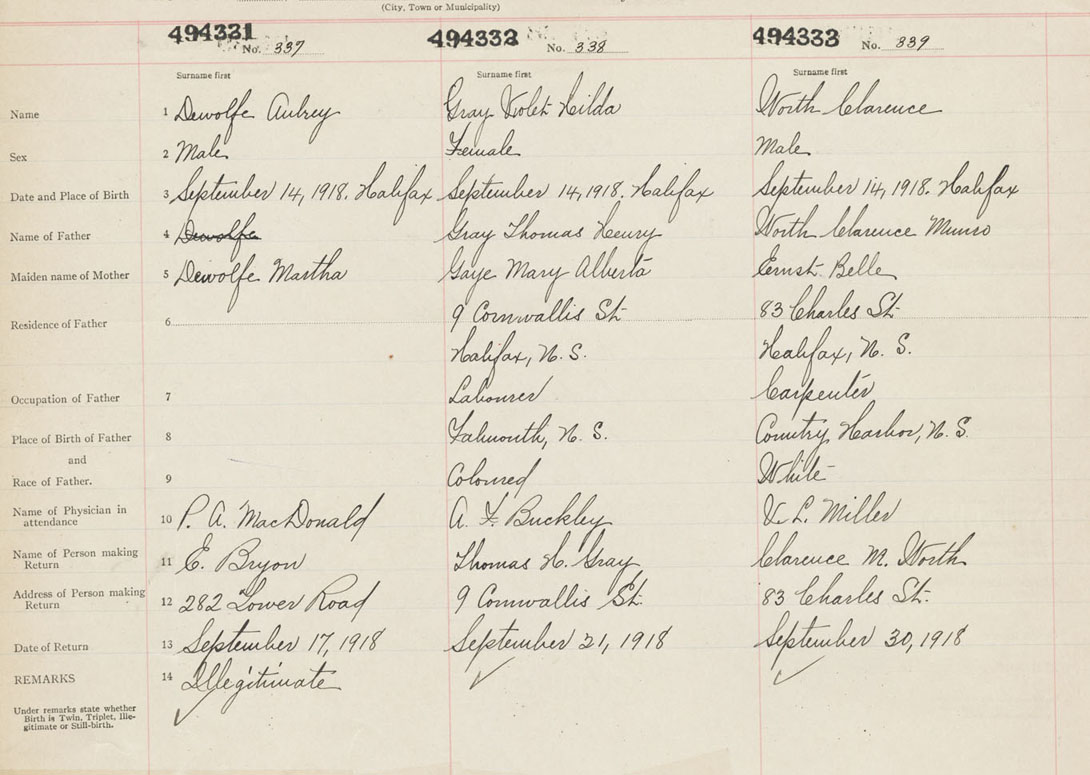 (City, Town or Municipality)
494331 No. 337 494332 No. 338 494333 No. 339
Surname first Surname first Surname first
Name 1 Dewolfe Aubrey Gray Violet Hilda Worth Clarence
Sex 2 Male Female Male
Date and Place of Birth 3 September 14, 1918. Halifax September 14, 1918. Halifax September 14, 1918. Halifax
Name of Father 4 Dewolfe Gray Thomas Henry Worth Clarence Munro
Maiden name of Mother 5 Dewolfe Martha Gaye Mary Alberta Ernst Belle
Residence of Father 6 9 Cornwallis St. 83 Charles St.
Halifax, N. S. Halifax, N. S.
Occupation of Father 7 Labourer Carpenter
Place of Birth of Father 8 Falmouth, N. S. Country Harbor, N. S.
and
Race of Father. 9 Coloured White
Name of Physician in attendance 10 P. A. MacDonald A. F. Buckley V. L. Miller
Name of Person making Return 11 E. Bryon Thomas H. Gray Clarence M. Worth
Address of Person making Return 12 282 Lower Road 9 Cornwallis St. 83 Charles St.
Date of Return 13 September 17, 1918 September 21, 1918 September 30, 1918
REMARKS 14 Illegitimate
Under remarks state whether
Birth is Twin, Triplet, Ille-
gitimate or Still-birth.